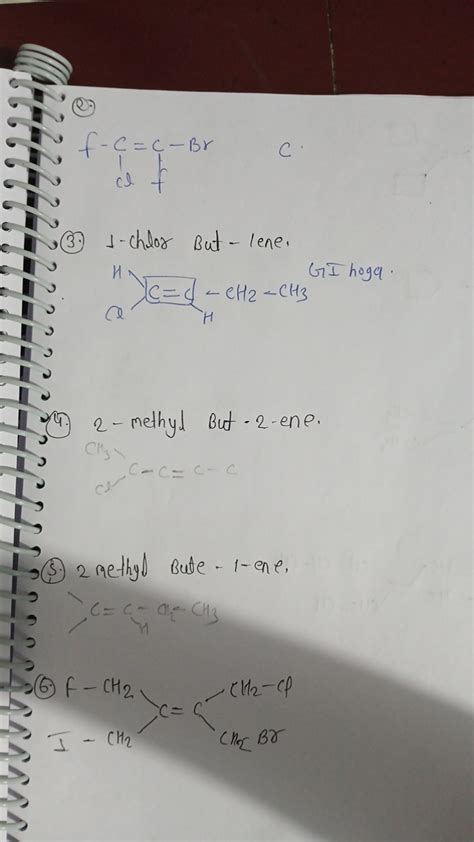 2.
f-C=C-Br C.
Cl f
3. 1-chlor But-1ene.
H
C=C-CH2-CH3 GI hoga.
Cl H
4. 2-methyl But-2-ene.
CH3
Cl C-C=C-C
5. 2 methyl Bute-1-ene.
C=C-CH2-CH3
H
6. F-CH2 CH2-Cl
C=C
I-CH2 CH2Br